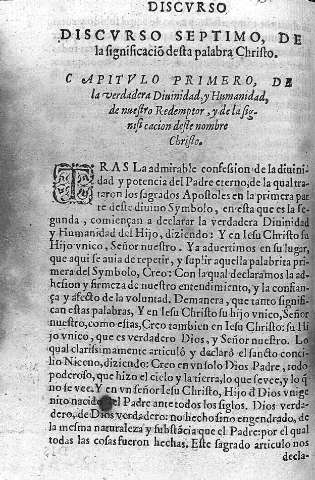 DISCVRSO
DISCVRSO SEPTIMO, DE
la significaciõ desta palabra Christo.
CAPITVLO PRIMERO, DE
la verdadera Diuinidad, y Humanidad,
de nuestro Redemptor, y de la sig-
nificacion deste nombre
Christo.
TRAS La admirable confession de la diuini
dad y potencia del Padre eterno, de la qual tra
taron los sagrados Apostoles en la primera par
te deste diuino Symbolo, en esta que es la se-
gunda, comiençan a declarar la verdadera Diuinidad
y Humanidad del Hijo, diziendo: Y en Iesu Christo su
Hijo vnico, Señor nuestro. Ya aduertimos en su lugar,
que aqui se auia de repetir, y suplir aquella palabrita pri
mera del Symbolo, Creo: Con la qual declaramos la ad-
hesion y firmeza de nuestro entendimiento, y la confian
ça y afecto de la voluntad. Demanera, que tanto signifi-
can estas palabras, Y en Iesu Christo su hijo vnico, Señor
nuestro, como estas, Creo tambien en Iesu Christo: su Hi
jo vnico, que es verdadero Dios, y Señor nuestro. Lo
qual clarissimamente articulò y declarò el sancto conci-
lio Niceno, diziendo: Creo en vn solo Dios Padre, todo
poderoso, que hizo el cielo y la tierra, lo que se vee, y lo q̃
no se vee. Y en vn señor Iesu Christo, Hijo d̃ Dios vnige
nito nacido del Padre ante todos los siglos. Dios verda-
dero, de Dios verdadero: no hecho sino engendrado, de
la mesma naturaleza y substãcia que el Padre: por el qual
todas las cosas fueron hechas. Este sagrado articulo nos
decla-